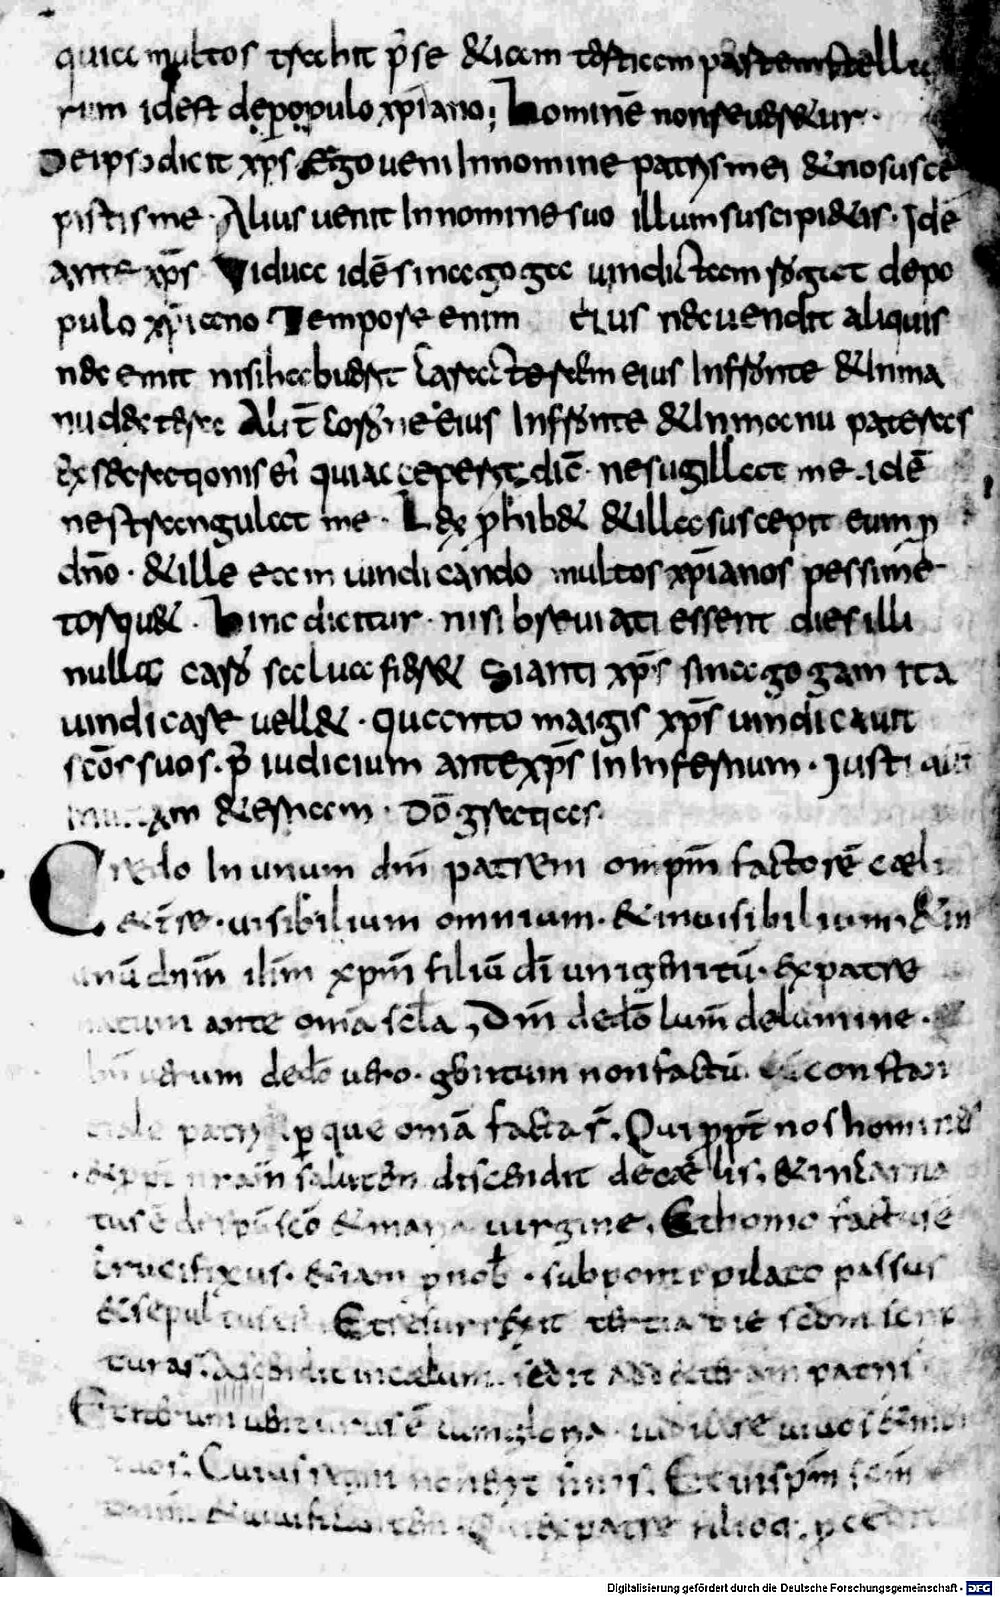 quia multos trahit p̄ se & iam tertiam partem stellarum
rum id est de populo xp̄iano; hominē non reueretur.
De ipso dicit xp̄s. Ego ueni In nomine patris mei & nō susce
pistis me. Alius uenit In nomine suo illum suscipietis. Idē
ante xp̄s Uidua idē sinagoga uindictam rogat de po
pulo xp̄iano Tempore enim eius nec uendit aliquis
nec emit nisi habuerit caracterem eius In fronte & In ma
nu dextera Alīt corone eius In fronte & In manu pateras
ne sugillat me. idē
ne strangulat me. Lex p̄hib& & illa suscepit eum p
dn̄o. & ille eam uindicando multos xp̄ianos pessime
torqu&. hinc dicitur. nisi breuiati essent dies illi
nulla caro salua fier& Si anti xp̄s sinagogam ita
uindicare uell&. quanto maigis xp̄s uindicauit
sc̄os suos. p̄ iudicium antexp̄s In Infernum. Iusti aūt
&ernam. Dō gratias.
Credo In unum dm̄ patrem omp̄m factorē cæli
& t̄re. uisibilium omnium. & inuisibilium. & in
unū dn̄m ih̄m xp̄m filiū dī unigenitū. Ex patre
natum ante om̄a scl̄a, Dm̄ de dō lum̄ de lumine.
uerum de dō uero. genitum non factū. constan
tiale patri p que om̄a facta s̄. Qui p̄pt̄ nos homines
& p̄pt̄ nr̄am salutem discendit de cælis. & incarna
tus ē de sp̄u sc̄o & maria uirgine. Et homo factus ē
Crucifixus. etiam p nob̄. sub pontio pilato passus
& sepultus est Et resurrexit tertia die secdm scrip
turas. Ascendit in cælum. sedit ad dexteram patris
Et iterum uenturus ē cum gloria iudicare uiuos & mor
tuos. Cuius regni non erit finis. Et in sp̄m sc̄m
& uiuificantem. Qui ex patre filioq.